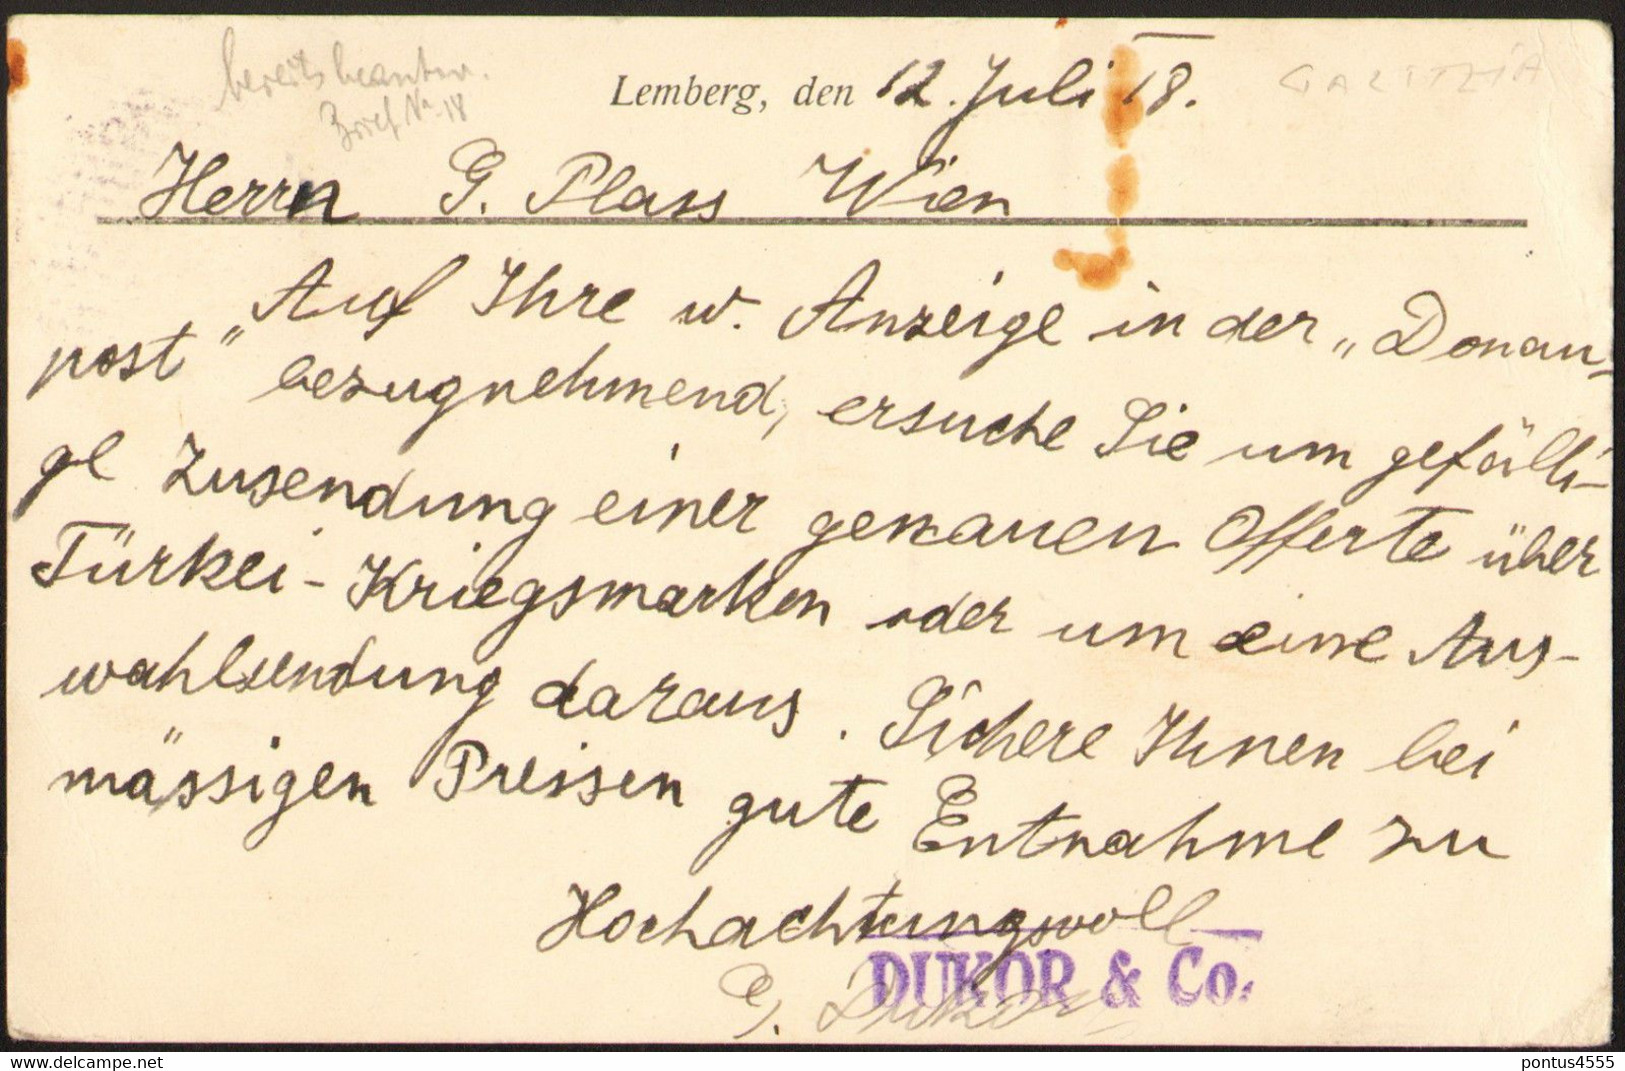 bereits beantw.
Brief No 18
Lemberg, den 12. Juli 18.
GALITZIA
Herrn G. Plass Wien
Auf Ihre w. Anzeige in der „Donau-
post" bezugnehmend, ersuche Sie um gefälli-
ge Zusendung einer genauen Offerte über
Türkei-Kriegsmarken oder um eine Aus-
wahlsendung daraus. Sichere Ihnen bei
mässigen Preisen gute Entnahme zu
Hochachtungsvoll
DUKOR & Co.
G. Dukor
delcampe.net
pontus4555